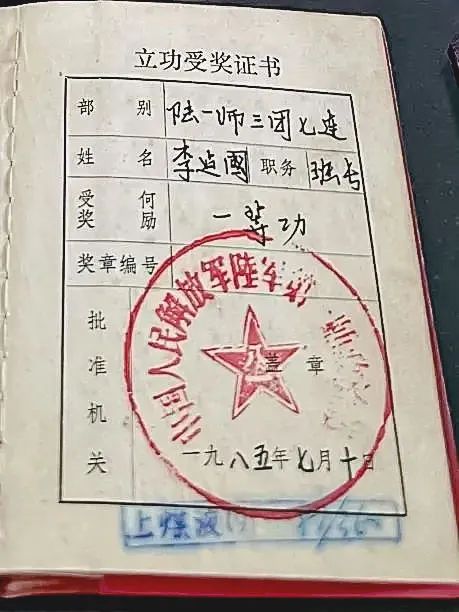 立功受奖证书
部别 陆一师三团七连
姓名 李延国 职务 班长
受何奖励 一等功
奖章编号
批准机关
中国人民解放军陆军第
八一
盖章
一九八五年七月十日